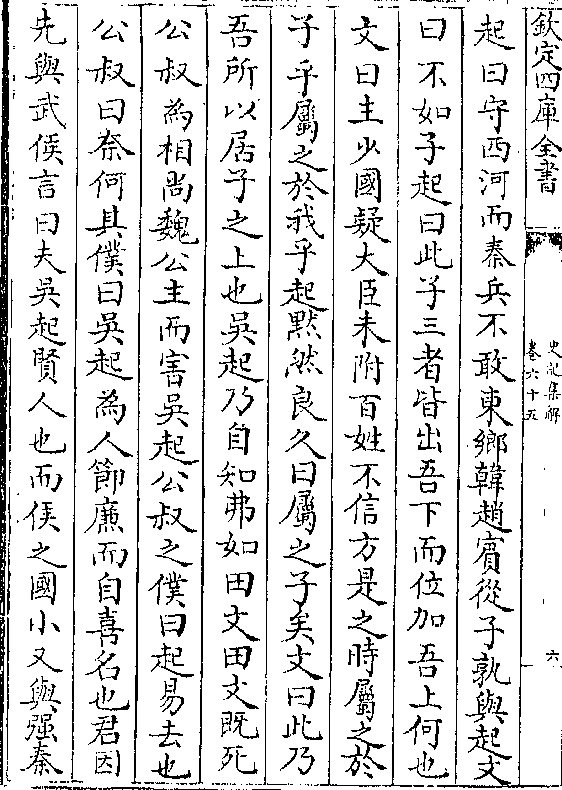 欽定四庫全書
史記集解
卷六十五
六
起曰守西河而秦兵不敢東鄉韓趙賔從子孰與起文
曰不如子起曰此子三者皆出吾下而位加吾上何也
文曰主少國疑大臣未附百姓不信方是之時屬之於
子乎屬之於我乎起黙然良久曰屬之子矣文曰此乃
吾所以居子之上也吳起乃自知弗如田文田文既死
公叔為相尚魏公主而害吳起公叔之僕曰起易去也
公叔曰奈何其僕曰吳起為人節廉而自喜名也君因
先與武侯言曰夫吳起賢人也而侯之國小又與强秦